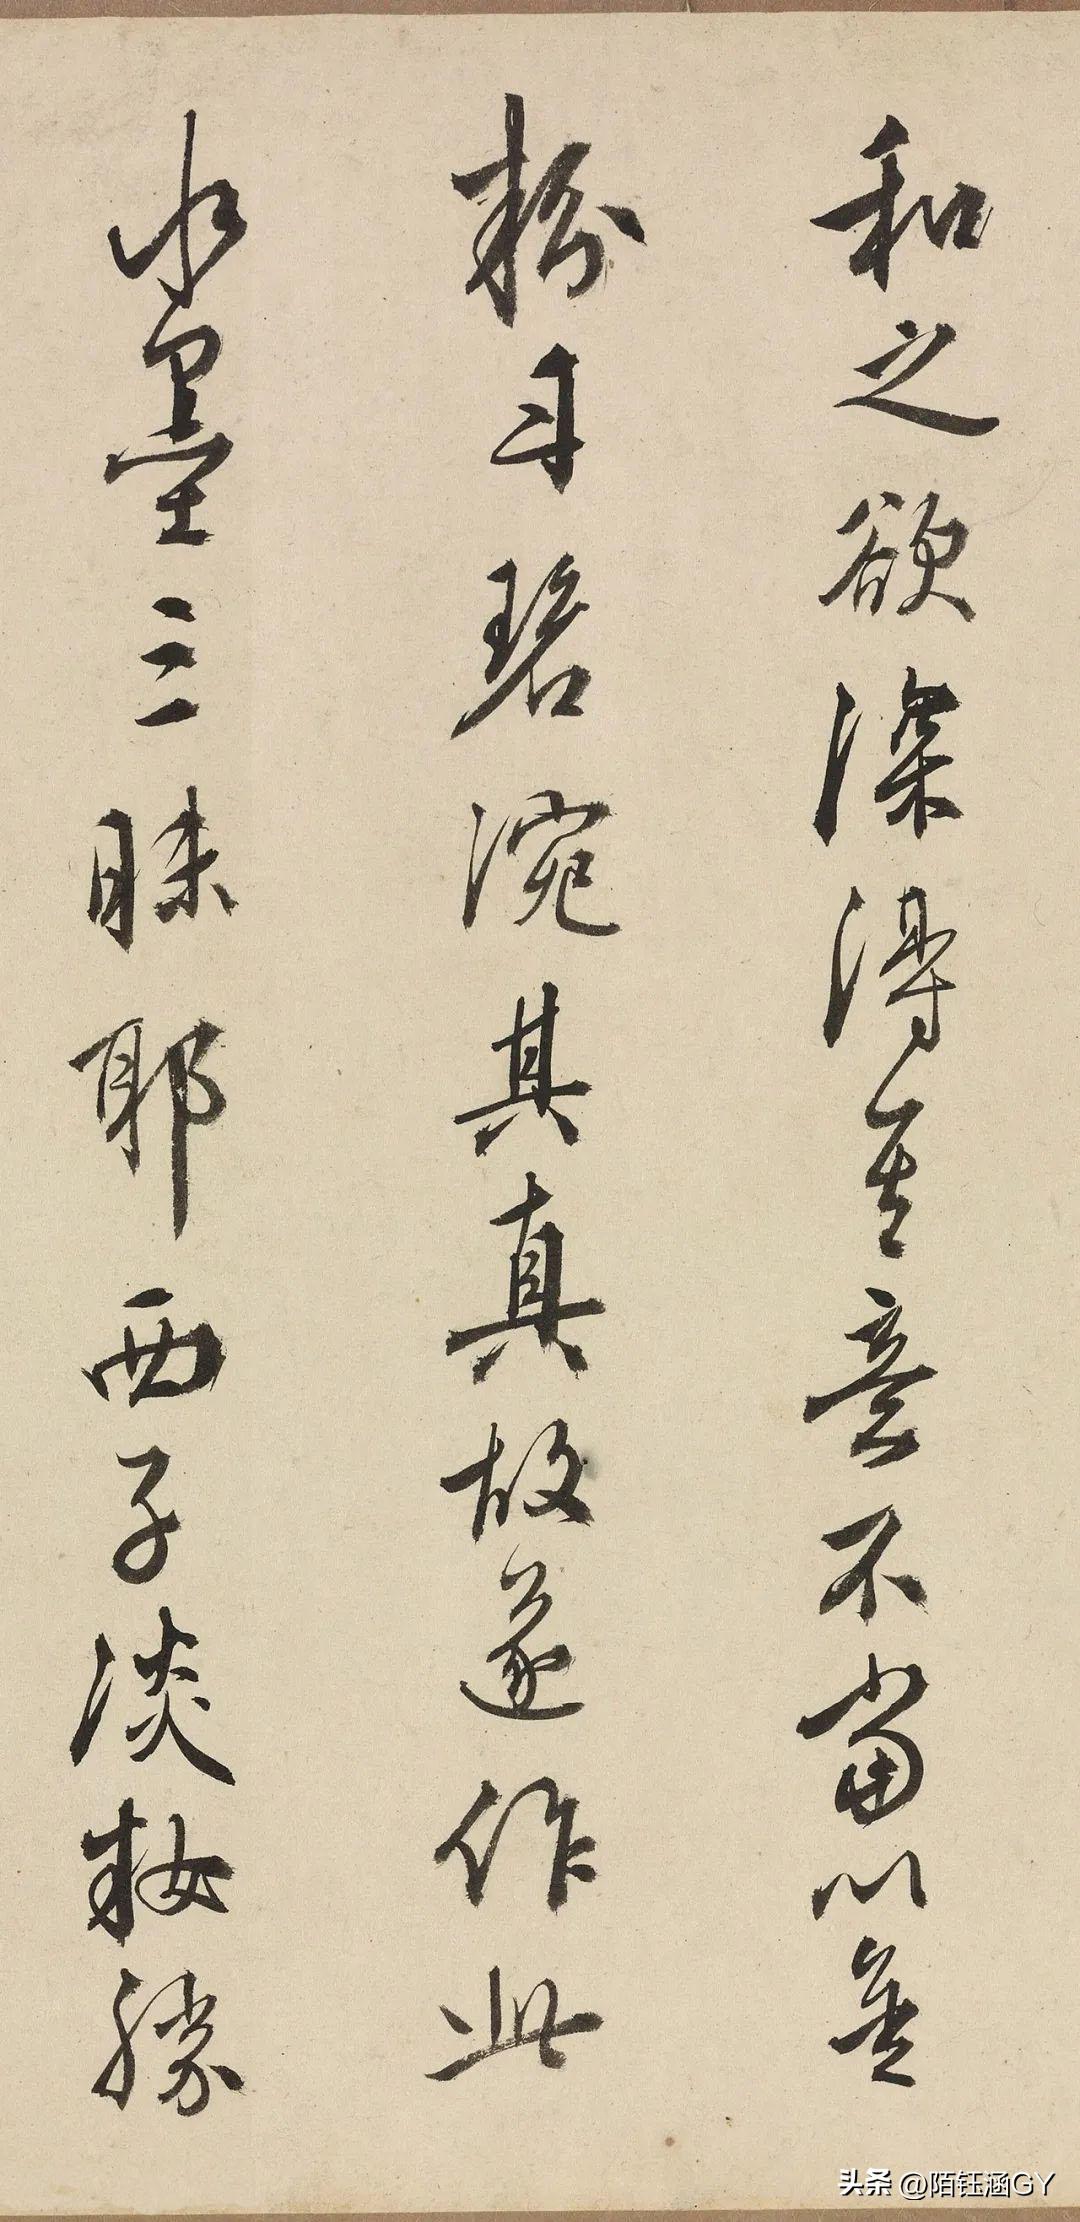 和之欲深得生意不當以
粉丹碧涴其真故遂作此
水墨三昧耶西子淡粧勝
头条 @陌钰涵GY